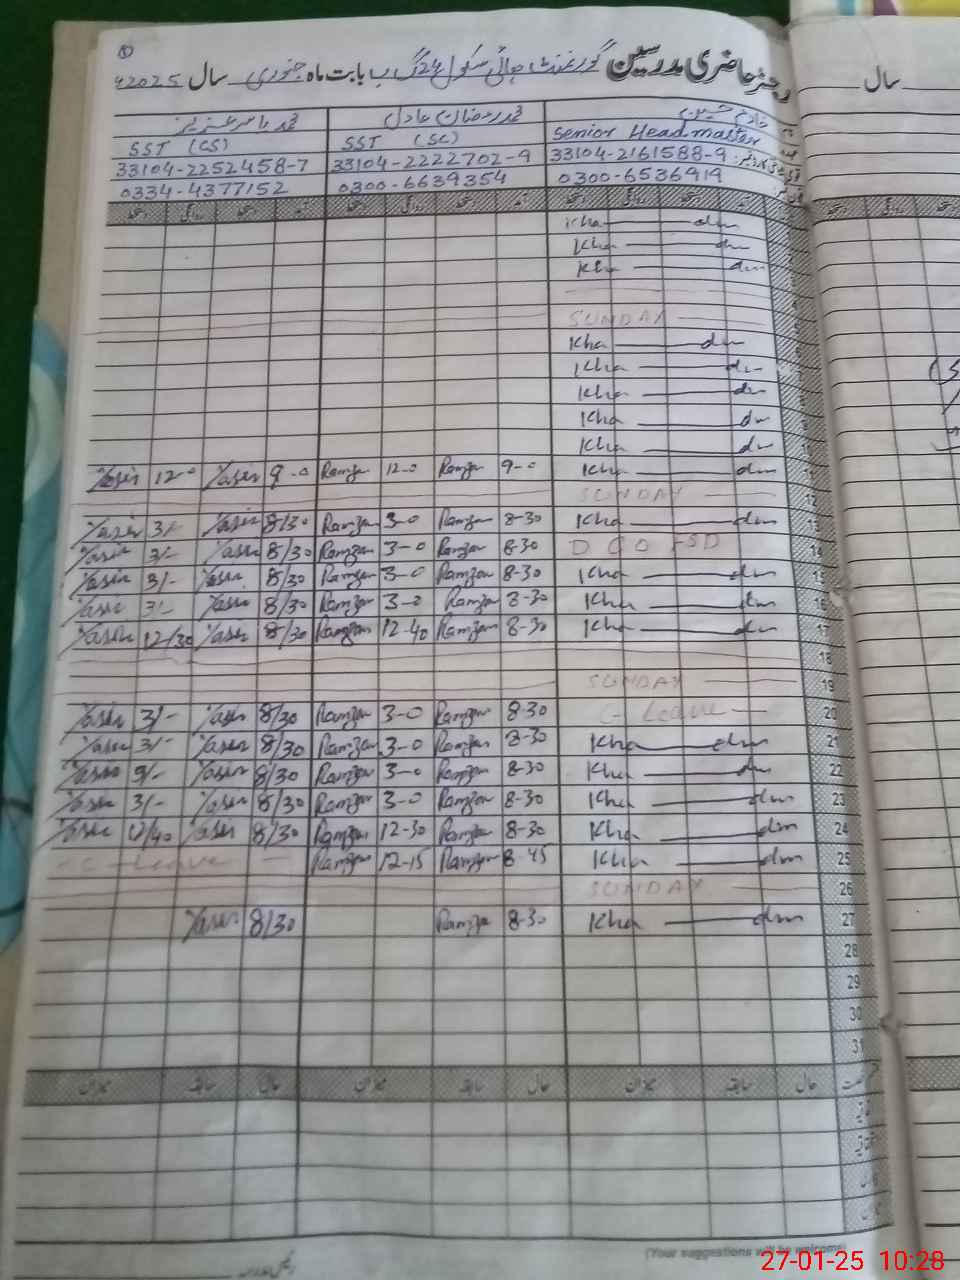 رجسٹر حاضری مدرسین گورنمنٹ ہائی سکول گ ب بابت ماہ جنوری سال 2025ء
سال
خادم حسین محمد رمضان عادل محمد یاسر عزیز
Senior Headmaster SST (SC) SST (CS)
33104-2161588-9 33104-2222702-9 33104-2252458-7
0300-6536919 0300-6639354 0334-4377152
Kha dm
Kha dm
Kha dm
SUNDAY
Kha dm
Kha dm
Kha dm
Kha dm
Kha dm
Yaser 12-0 Yaser 9-0 Ramzan 12-0 Ramzan 9-0 Kha dm
SUNDAY 12
Yaser 3/- Yaser 8/30 Ramzan 3-0 Ramzan 8-30 Kha dm 13
Yaser 3/- Yaser 8/30 Ramzan 3-0 Ramzan 8-30 FSD 14
Yaser 3/- Yaser 8/30 Ramzan 3-0 Ramzan 8-30 Kha dm 15
Yaser 3/- Yaser 8/30 Ramzan 3-0 Ramzan 8-30 Kha dm 16
Yaser 12/30 Yaser 8/30 Ramzan 12-40 Ramzan 8-30 Kha dm 17
18
SUNDAY 19
Yaser 3/- Yaser 8/30 Ramzan 3-0 Ramzan 8-30 C-Leave 20
Yaser 3/- Yaser 8/30 Ramzan 3-0 Ramzan 8-30 Kha dm 21
Yaser 3/- Yaser 8/30 Ramzan 3-0 Ramzan 8-30 Kha dm 22
Yaser 3/- Yaser 8/30 Ramzan 3-0 Ramzan 8-30 Kha dm 23
Yaser 12/40 Yaser 8/30 Ramzan 12-30 Ramzan 8-30 Kha dm 24
C-Leave Ramzan 12-15 Ramzan 8-45 Kha dm 25
SUNDAY 26
Yaser 8/30 Ramzan 8-30 Kha dm 27
28
29
30
31
حال سابقہ میزان حال سابقہ میزان حال سابقہ میزان
(Your suggestions will be welcome)
27-01-25 10:28